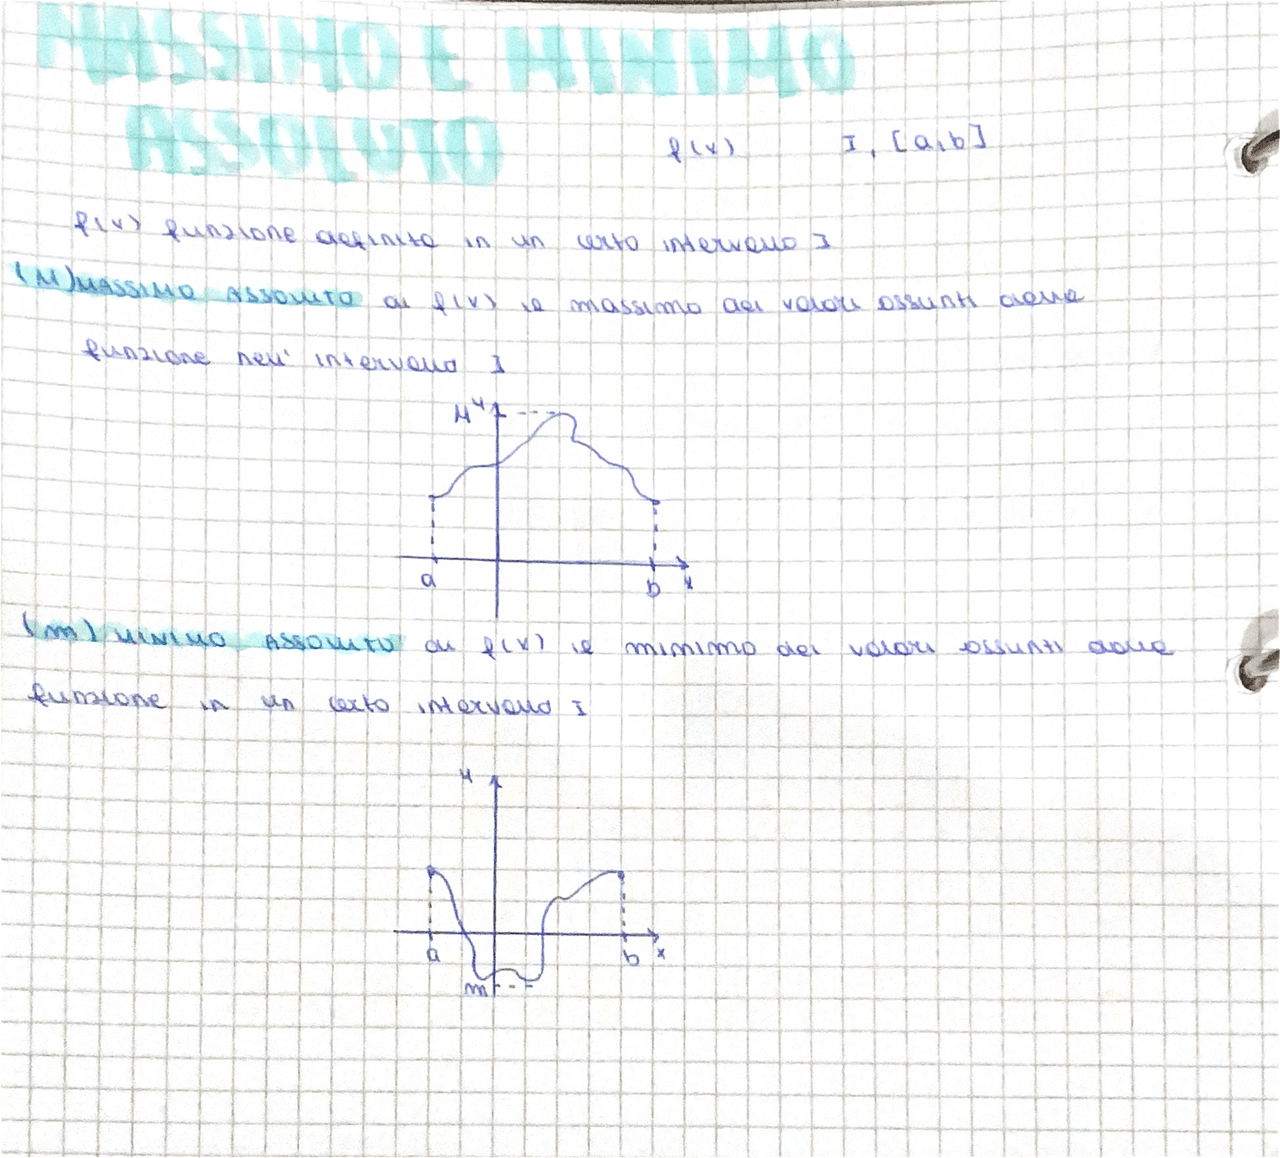 MASSIMO E MINIMO
ASSOLUTO
f(x) I, [a,b]
f(x) funzione definita in un certo intervallo I
(M) MASSIMO ASSOLUTO di f(x) il massimo dei valori assunti dalla
funzione nell' intervallo I
M y
a b x
(m) MINIMO ASSOLUTO di f(x) il minimo dei valori assunti dalla
funzione in un certo intervallo I
y
a b x
m